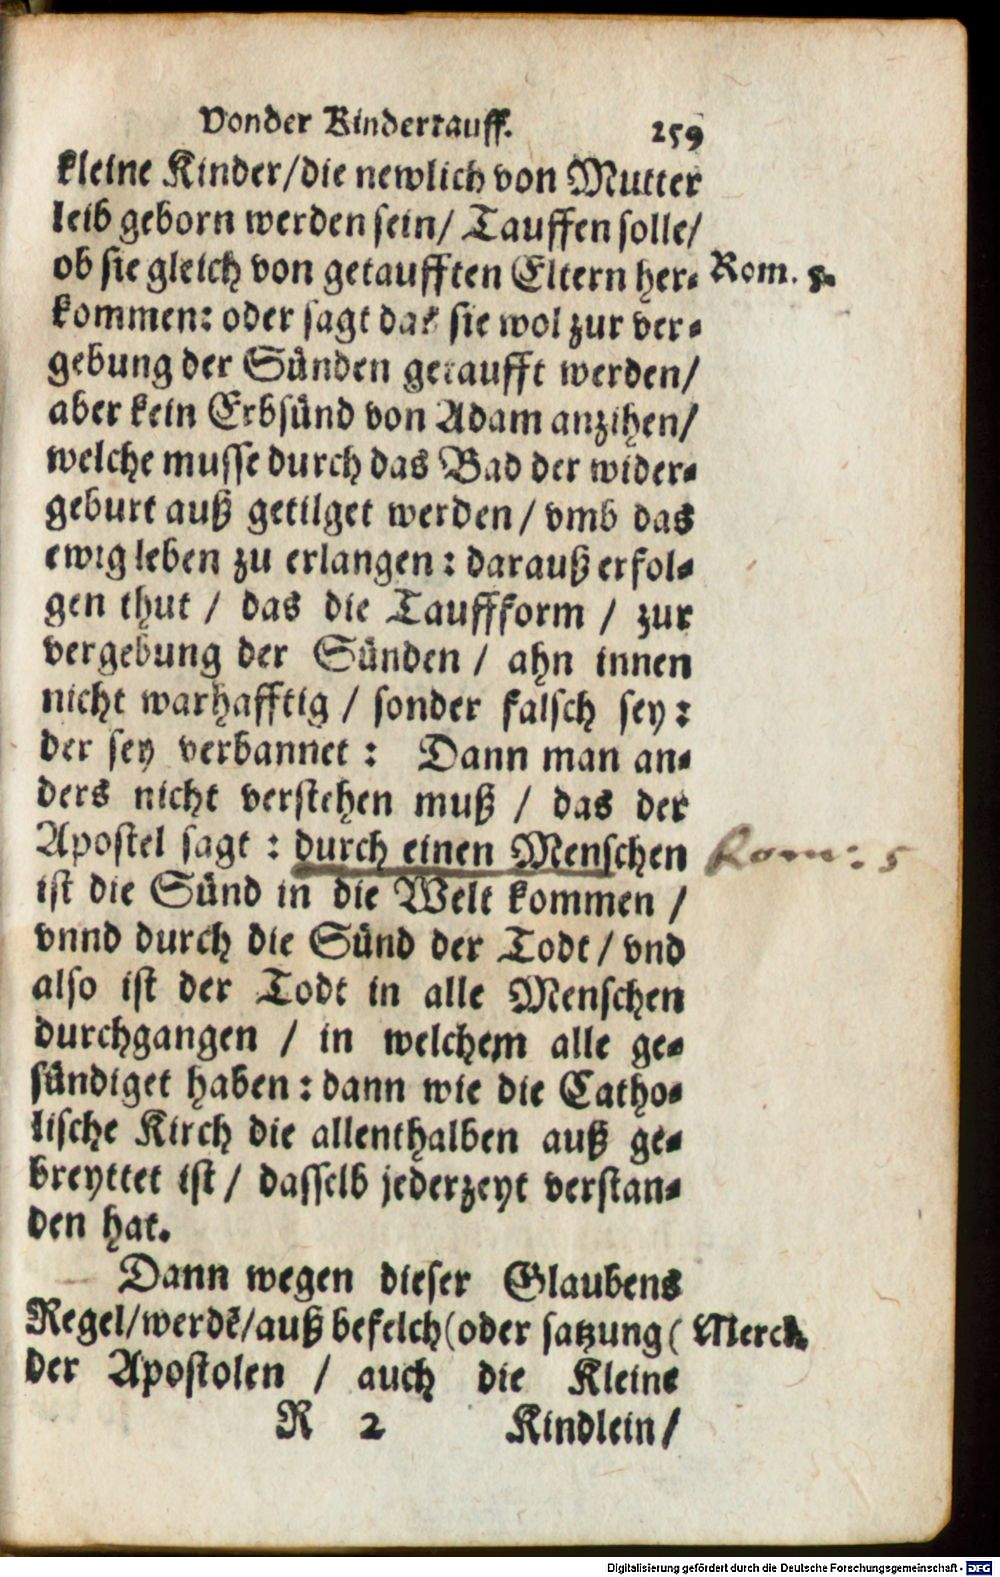 Von der Kindertauff. 259
kleine Kinder/die newlich von Mutter
leib geborn werden sein/ Tauffen solle/
ob sie gleich von getaufften Eltern her⸗ Rom. 5.
kommen: oder sagt das sie wol zur ver⸗
gebung der Sünden getaufft werden/
aber kein Erbsünd von Adam anzihen/
welche musse durch das Bad der wider⸗
geburt auß getilget werden / vmb das
ewig leben zu erlangen : darauß erfol⸗
gen thut / das die Tauffform / zur
vergebung der Sünden / ahn innen
nicht warhafftig / sonder falsch sey :
der sey verbannet : Dann man an⸗
ders nicht verstehen muß / das der
Apostel sagt : durch einen Menschen Rom: 5
ist die Sünd in die Welt kommen /
vnnd durch die Sünd der Todt / vnd
also ist der Todt in alle Menschen
durchgangen / in welchem alle ge⸗
sündiget haben : dann wie die Catho⸗
lische Kirch die allenthalben auß ge⸗
breyttet ist / dasselb jederzeyt verstan⸗
den hat.
Dann wegen dieser Glaubens
Regel/werdẽ/auß befelch(oder satzung( Merck
der Apostolen / auch die Kleine
R 2 Kindlein /
Digitalisierung gefördert durch die Deutsche Forschungsgemeinschaft - DFG